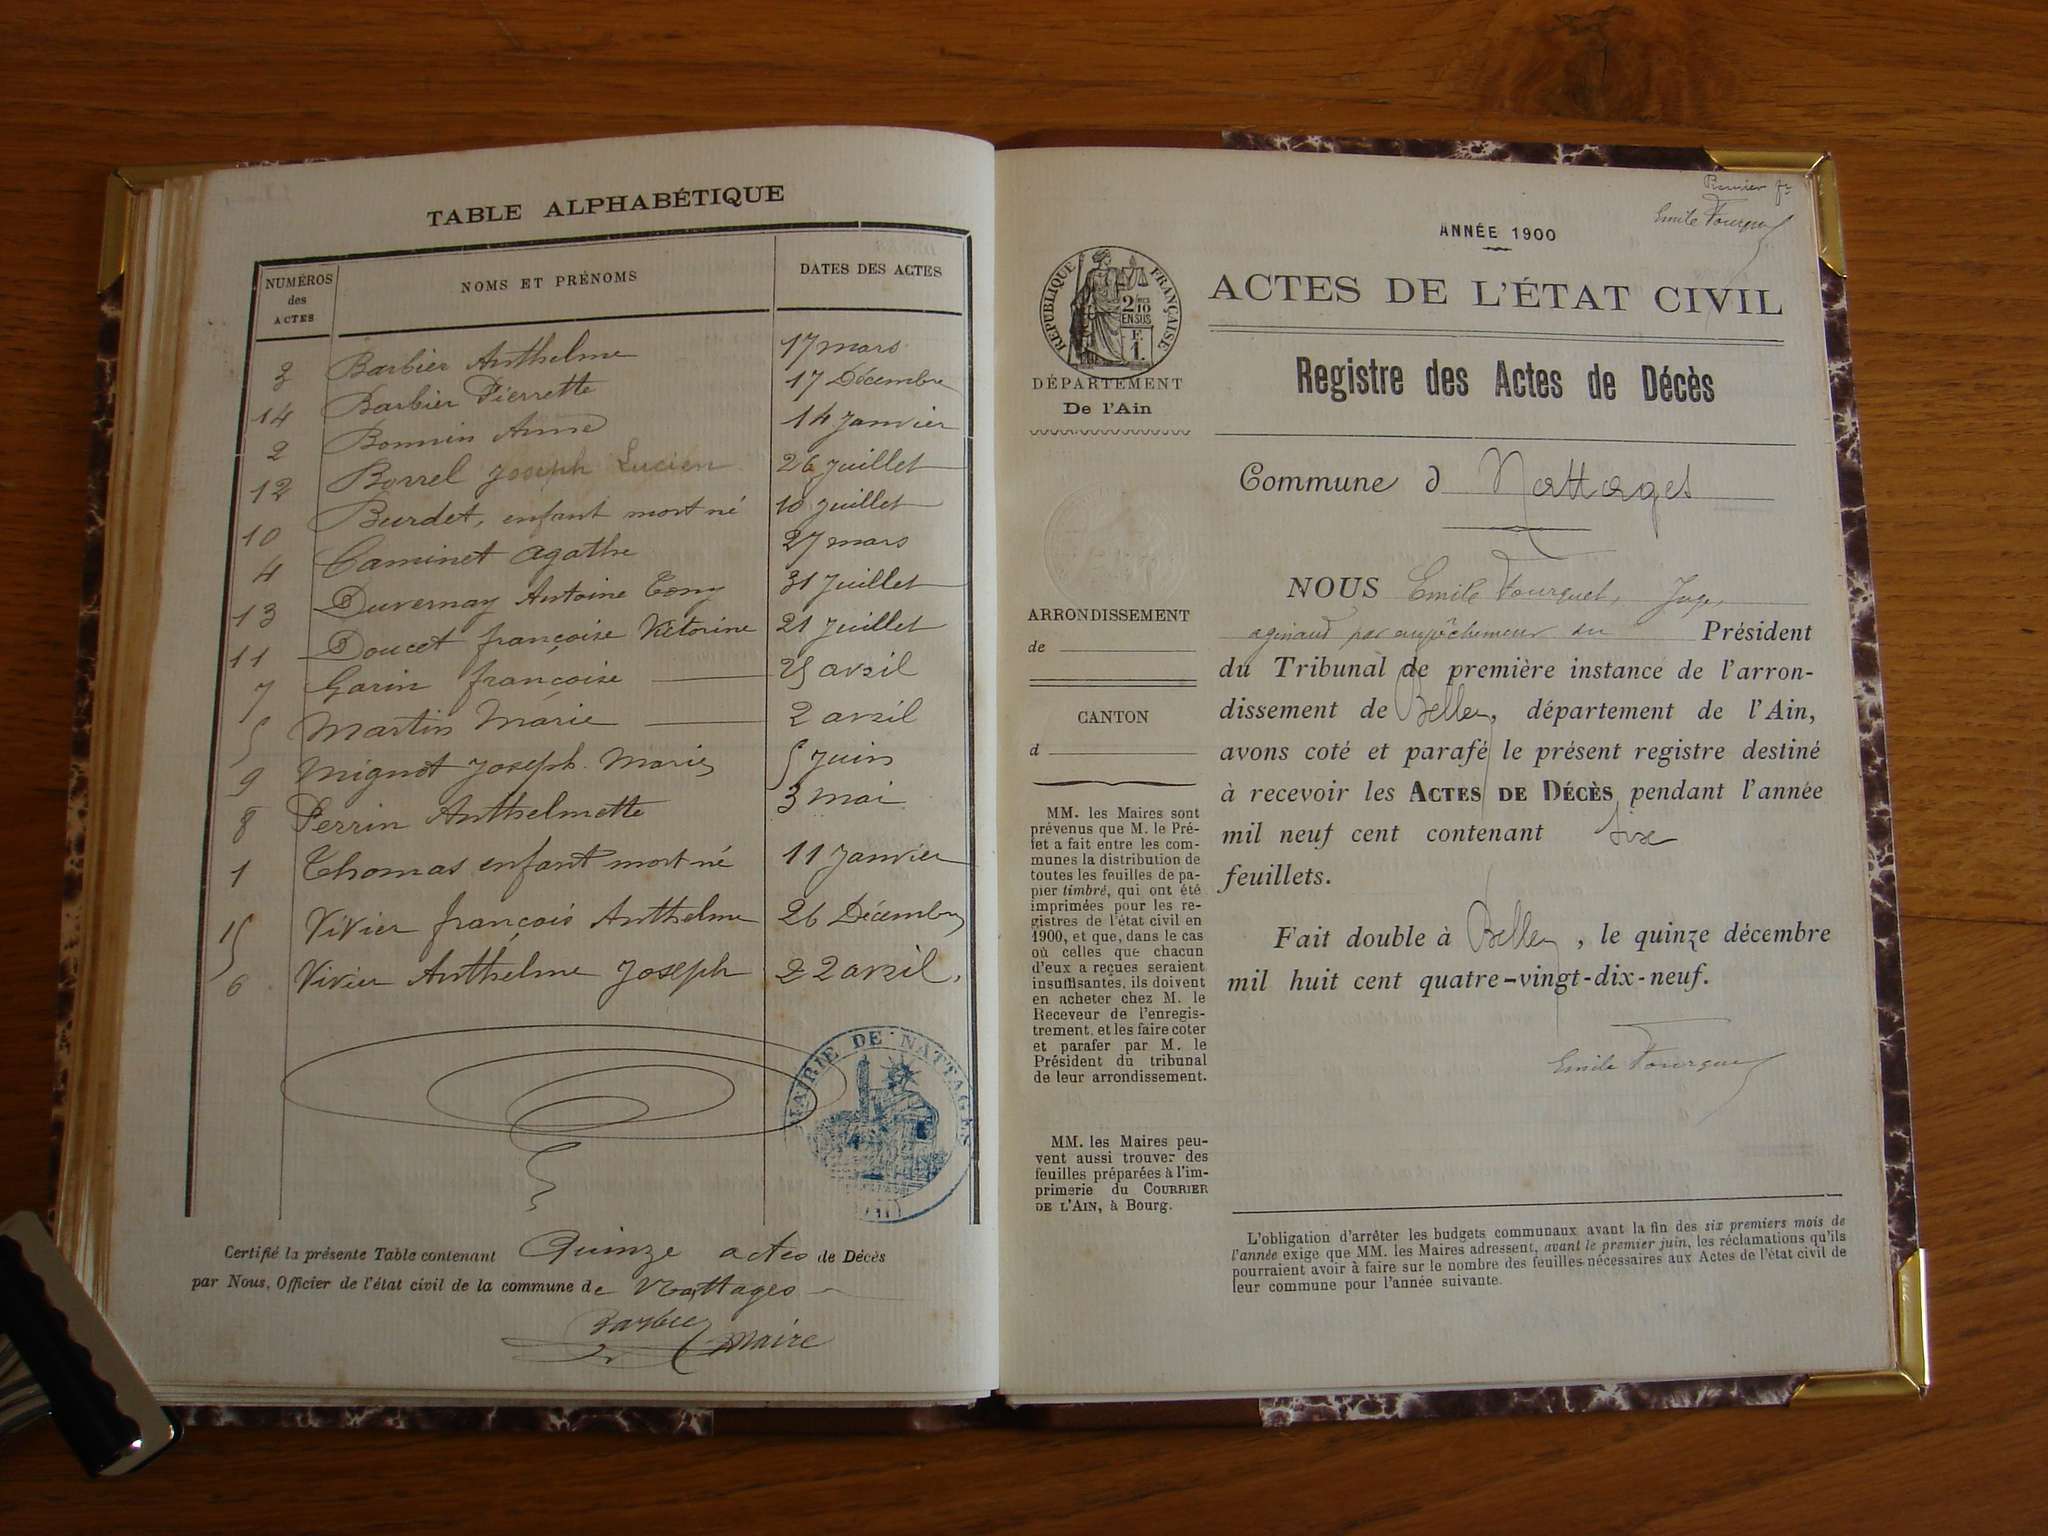 TABLE ALPHABÉTIQUE
NUMÉROS des ACTES
NOMS ET PRÉNOMS
DATES DES ACTES
3 Barbier Anthelme 17 mars
14 Barbier Pierrette 17 Décembre
2 Bonnin Anne 14 Janvier
12 Borrel Joseph Lucien 26 Juillet
10 Burdet, enfant mort né 10 Juillet
4 Caminet Agathe 27 mars
13 Duvernay Antoine Tony 31 Juillet
11 Doucet françoise Victorine 21 Juillet
7 Garin françoise 25 avril
5 Martin Marie 2 avril
9 Mignot Joseph Marie 5 Juin
8 Perrin Anthelmette 3 mai
1 Thomas enfant mort né 11 Janvier
15 Vivier françois Anthelme 26 Décembre
6 Vivier Anthelme Joseph 22 avril.
MAIRIE DE NATTAGES
(AIN)
Certifié la présente Table contenant Quinze actes de Décès
par Nous, Officier de l'état civil de la commune de Nattages
Barbier
Maire
Premier
Emile Fourquet
ANNÉE 1900
RÉPUBLIQUE FRANÇAISE
2/10
EN SUS
F
1.
DÉPARTEMENT
De l'Ain
ARRONDISSEMENT
de
CANTON
d
MM. les Maires sont
prévenus que M. le Pré-
fet a fait entre les com-
munes la distribution de
toutes les feuilles de pa-
pier timbré, qui ont été
imprimées pour les re-
gistres de l'état civil en
1900, et que, dans le cas
où celles que chacun
d'eux a reçues seraient
insuffisantes, ils doivent
en acheter chez M. le
Receveur de l'enregis-
trement, et les faire coter
et parafer par M. le
Président du tribunal
de leur arrondissement.
MM. les Maires peu-
vent aussi trouver des
feuilles préparées à l'im-
primerie du COURRIER
DE L'AIN, à Bourg.
ACTES DE L'ÉTAT CIVIL
Registre des Actes de Décès
Commune d Nattages
NOUS Emile Fourquet, Juge,
par empêchement du Président
du Tribunal de première instance de l'arron-
dissement de Belley, département de l'Ain,
avons coté et parafé le présent registre destiné
à recevoir les ACTES DE DÉCÈS pendant l'année
mil neuf cent contenant six
feuillets.
Fait double à Belley, le quinze décembre
mil huit cent quatre-vingt-dix-neuf.
Emile Fourquet
L'obligation d'arrêter les budgets communaux avant la fin des six premiers mois de
l'année exige que MM. les Maires adressent, avant le premier juin, les réclamations qu'ils
pourraient avoir à faire sur le nombre des feuilles nécessaires aux Actes de l'état civil de
leur commune pour l'année suivante.